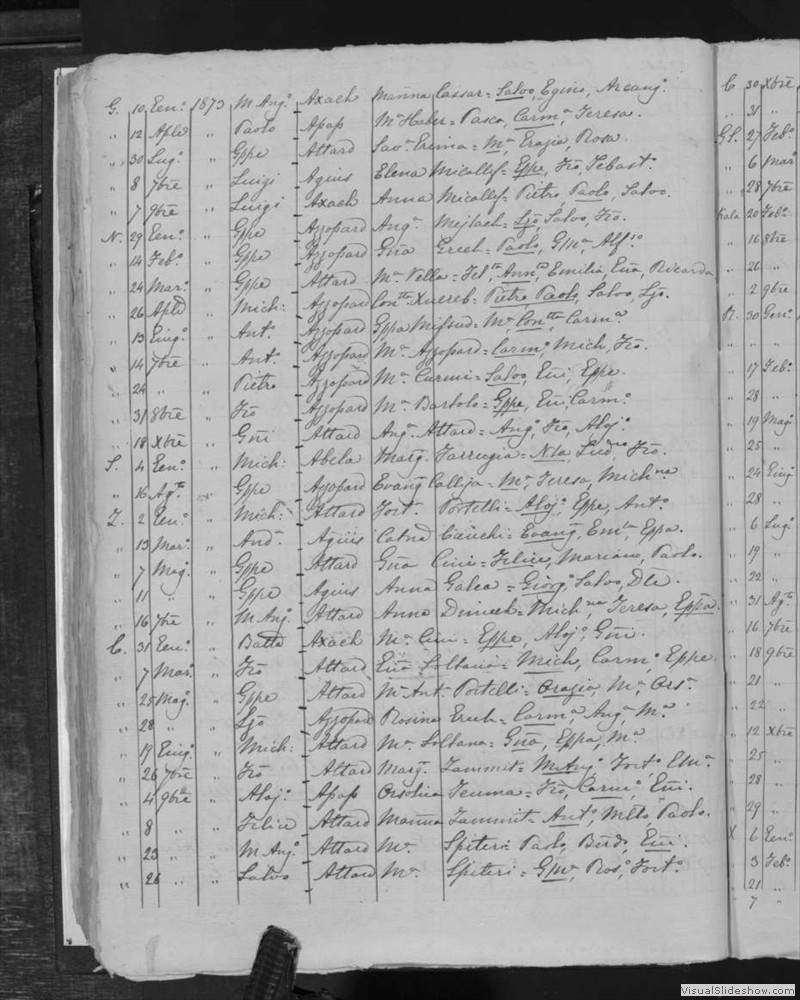 G. 10 Een: 1873 M Ang: Axach Marina Cassar = Salvo, Egino, Arcang:
" 12 Aple " Paolo Apap Mª Haber = Pasca, Carmª, Teresa.
" 30 Lugº " Gppe Attard Savª Erinia = Mª Erazia, Rosa.
" 8 7bre " Luigi Agius Elena Micallef = Eppe, Fco, Sebastº.
" 7 9bre " Luigi Axach Anna Micallef = Pietro, Paolo, Salvo.
N. 29 Een: " Gppe Azzopard Angª Mejlach = Ljo, Salvo, Fco.
" 14 Febº " Gppe Azzopard Gña Grech = Paolo, Gmª, Alfso.
" 24 Marº " Gppe Attard Mª Vella = Felte, Annta, Emilia, Eña, Ricarda
" 26 Aple " Mich: Azzopard Conta Xuereb = Pietro Paolo, Salvo, Ljo.
" 13 Eiugº " Antº Azzopard Gppa Mifsud = Mª, Conta, Carmª.
" 14 7bre " Antº Azzopard Mª Azzopard = Carmº, Mich, Fco.
" 24 " " Pietro Azzopard Mª Curmi = Salvo, Eñi, Eppe.
" 31 8bre " Fco Azzopard Mª Bartolo = Gppe, Eñi, Carmº.
" 18 Xbre " Gñi Attard Angª Attard = Angº, Fco, Alojº.
S. 4 Een: " Mich: Abela Marg. Farrugia = Nla, Fco.
" 16 Agto " Gppe Azzopard Evang Calleja = Mª, Teresa, Michna
Z. 2 Een: " Mich: Attard Fort. Portelli = Alojº, Eppe, Antº.
" 13 Marº " Andº Agius Catna Cauchi = Evang, Emla, Eppa.
" 7 Magº " Gppe Attard Gña Cini = Felice, Mariano, Paolo.
" 11 " " Gppe Agius Anna Galea = Giorgº, Salvo, Dte.
" 16 7bre " M Angº Attard Anna Dimech = Michna, Teresa, Eppa.
C. 31 Een: " Batta Axach Mª Cini = Eppe, Alojº, Gñi.
" 7 Marº " Fco Attard Eña Soltana = Mich, Carmº, Eppe.
" 25 Magº " Gppe Attard Mª Antª Portelli = Orazia, Mª, Orsª.
" 28 " " Ljo Azzopard Rosina Grech = Carmª, Angª, Mª.
" 19 Eiugº " Mich: Attard Mª Soltana = Gña, Eppa, Mª
" 26 7bre " Fco Attard Marg. Zammit = M Angº, Fortº, Elmª.
" 4 9bre " Alojº Apap Orsolina Teuma = Fco, Carmº, Eñi.
" 8 " " Felice Attard Marina Zammit = Antº, Mlto, Paolo.
" 23 " " M Angº Attard Mª Spiteri = Paolo, Brdº, Eñi.
" 26 " " Salvo Attard Mª Spiteri = Gmª, Rosº, Fortº.
C 30 Xbre
" 31 "
GS. 27 Febº
" 6 Marº
" 28 7bre
Kala 20 Febº
" 16 8bre
" 26 "
" 2 9bre
R. 30 Gen:
" " "
" 17 Febº
" 28 "
" 19 Magº
" 25 "
" 24 Eiugº
" 28 "
" 6 Lugº
" 19 "
" 22 "
" 31 Agto
" 16 7bre
" 18 9bre
" 21 "
" 22 "
" 12 Xbre
" 25 "
" 28 "
" 29 "
X 6 Een:
" 3 Febº
" 21 "
" 7 "
VisualSlideshow.com